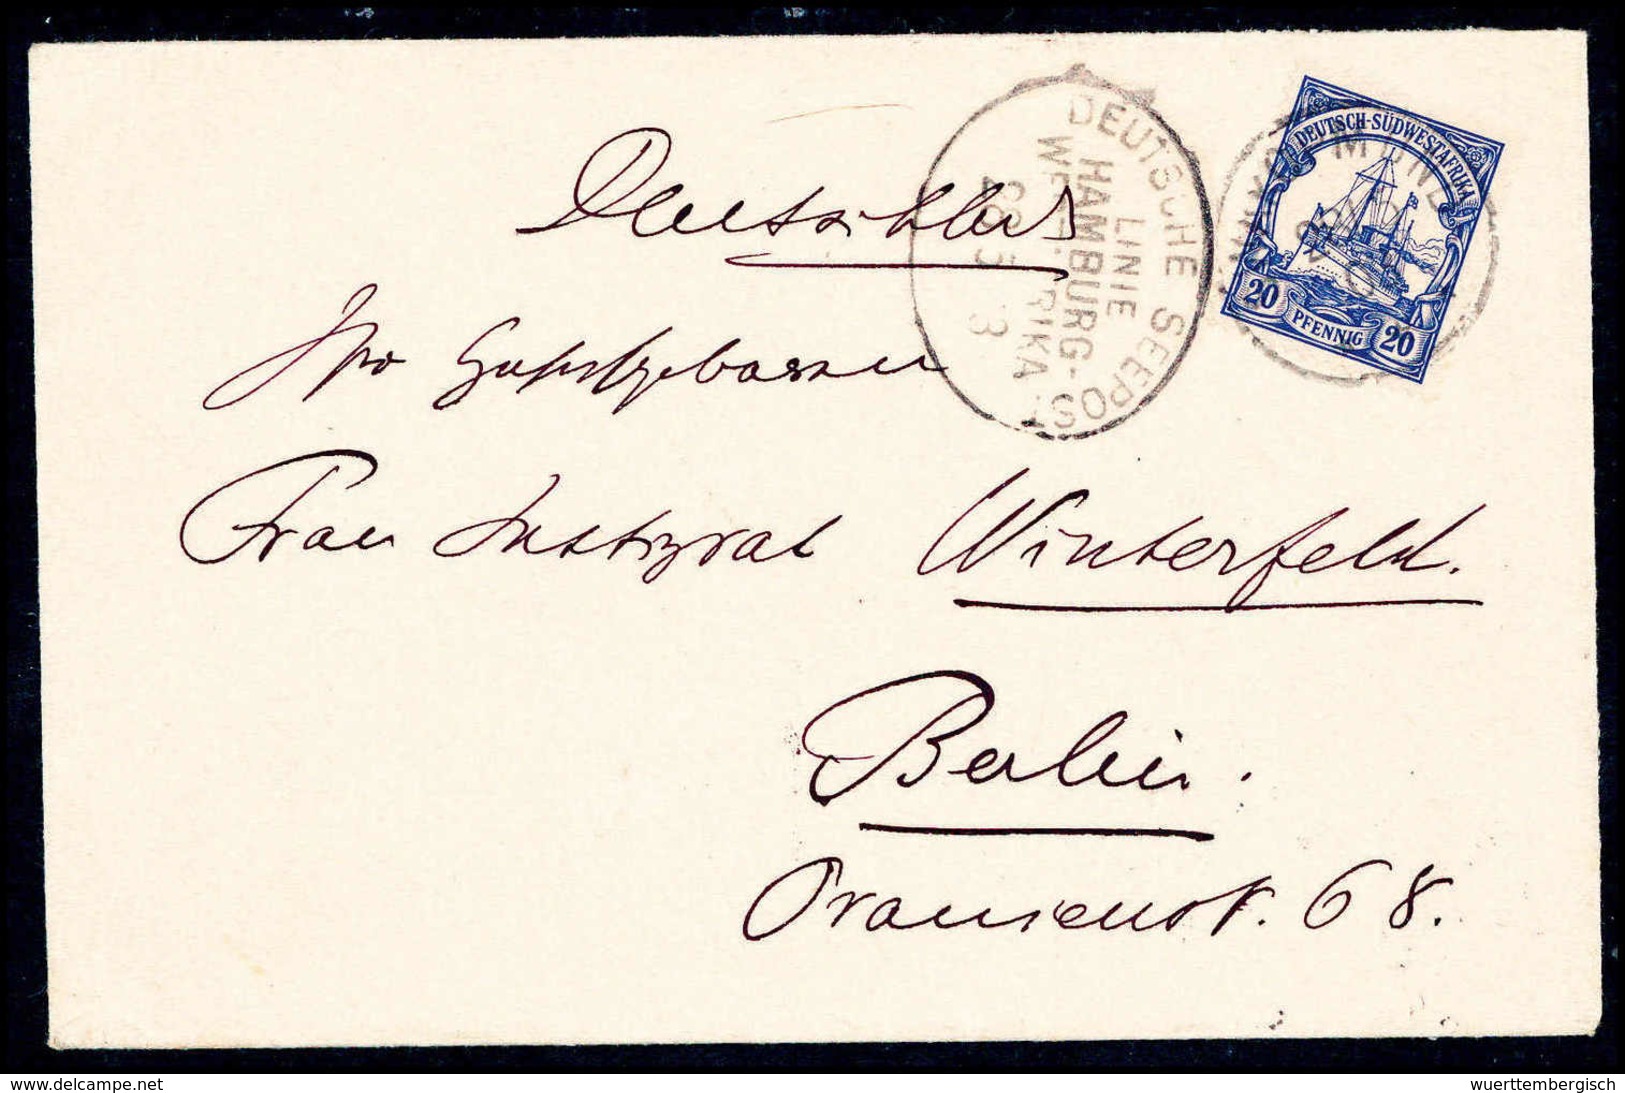 Deutschland
Ihro Hochwohlgeboren
Frau Justizrat Winterfeldt.
Berlin.
Oranienstr. 68.
DEUTSCHE SEEPOST
LINIE
HAMBURG-
26 5 3
DEUTSCH-SÜDWESTAFRIKA
20 PFENNIG 20
www.delcampe.net
wuerttembergisch